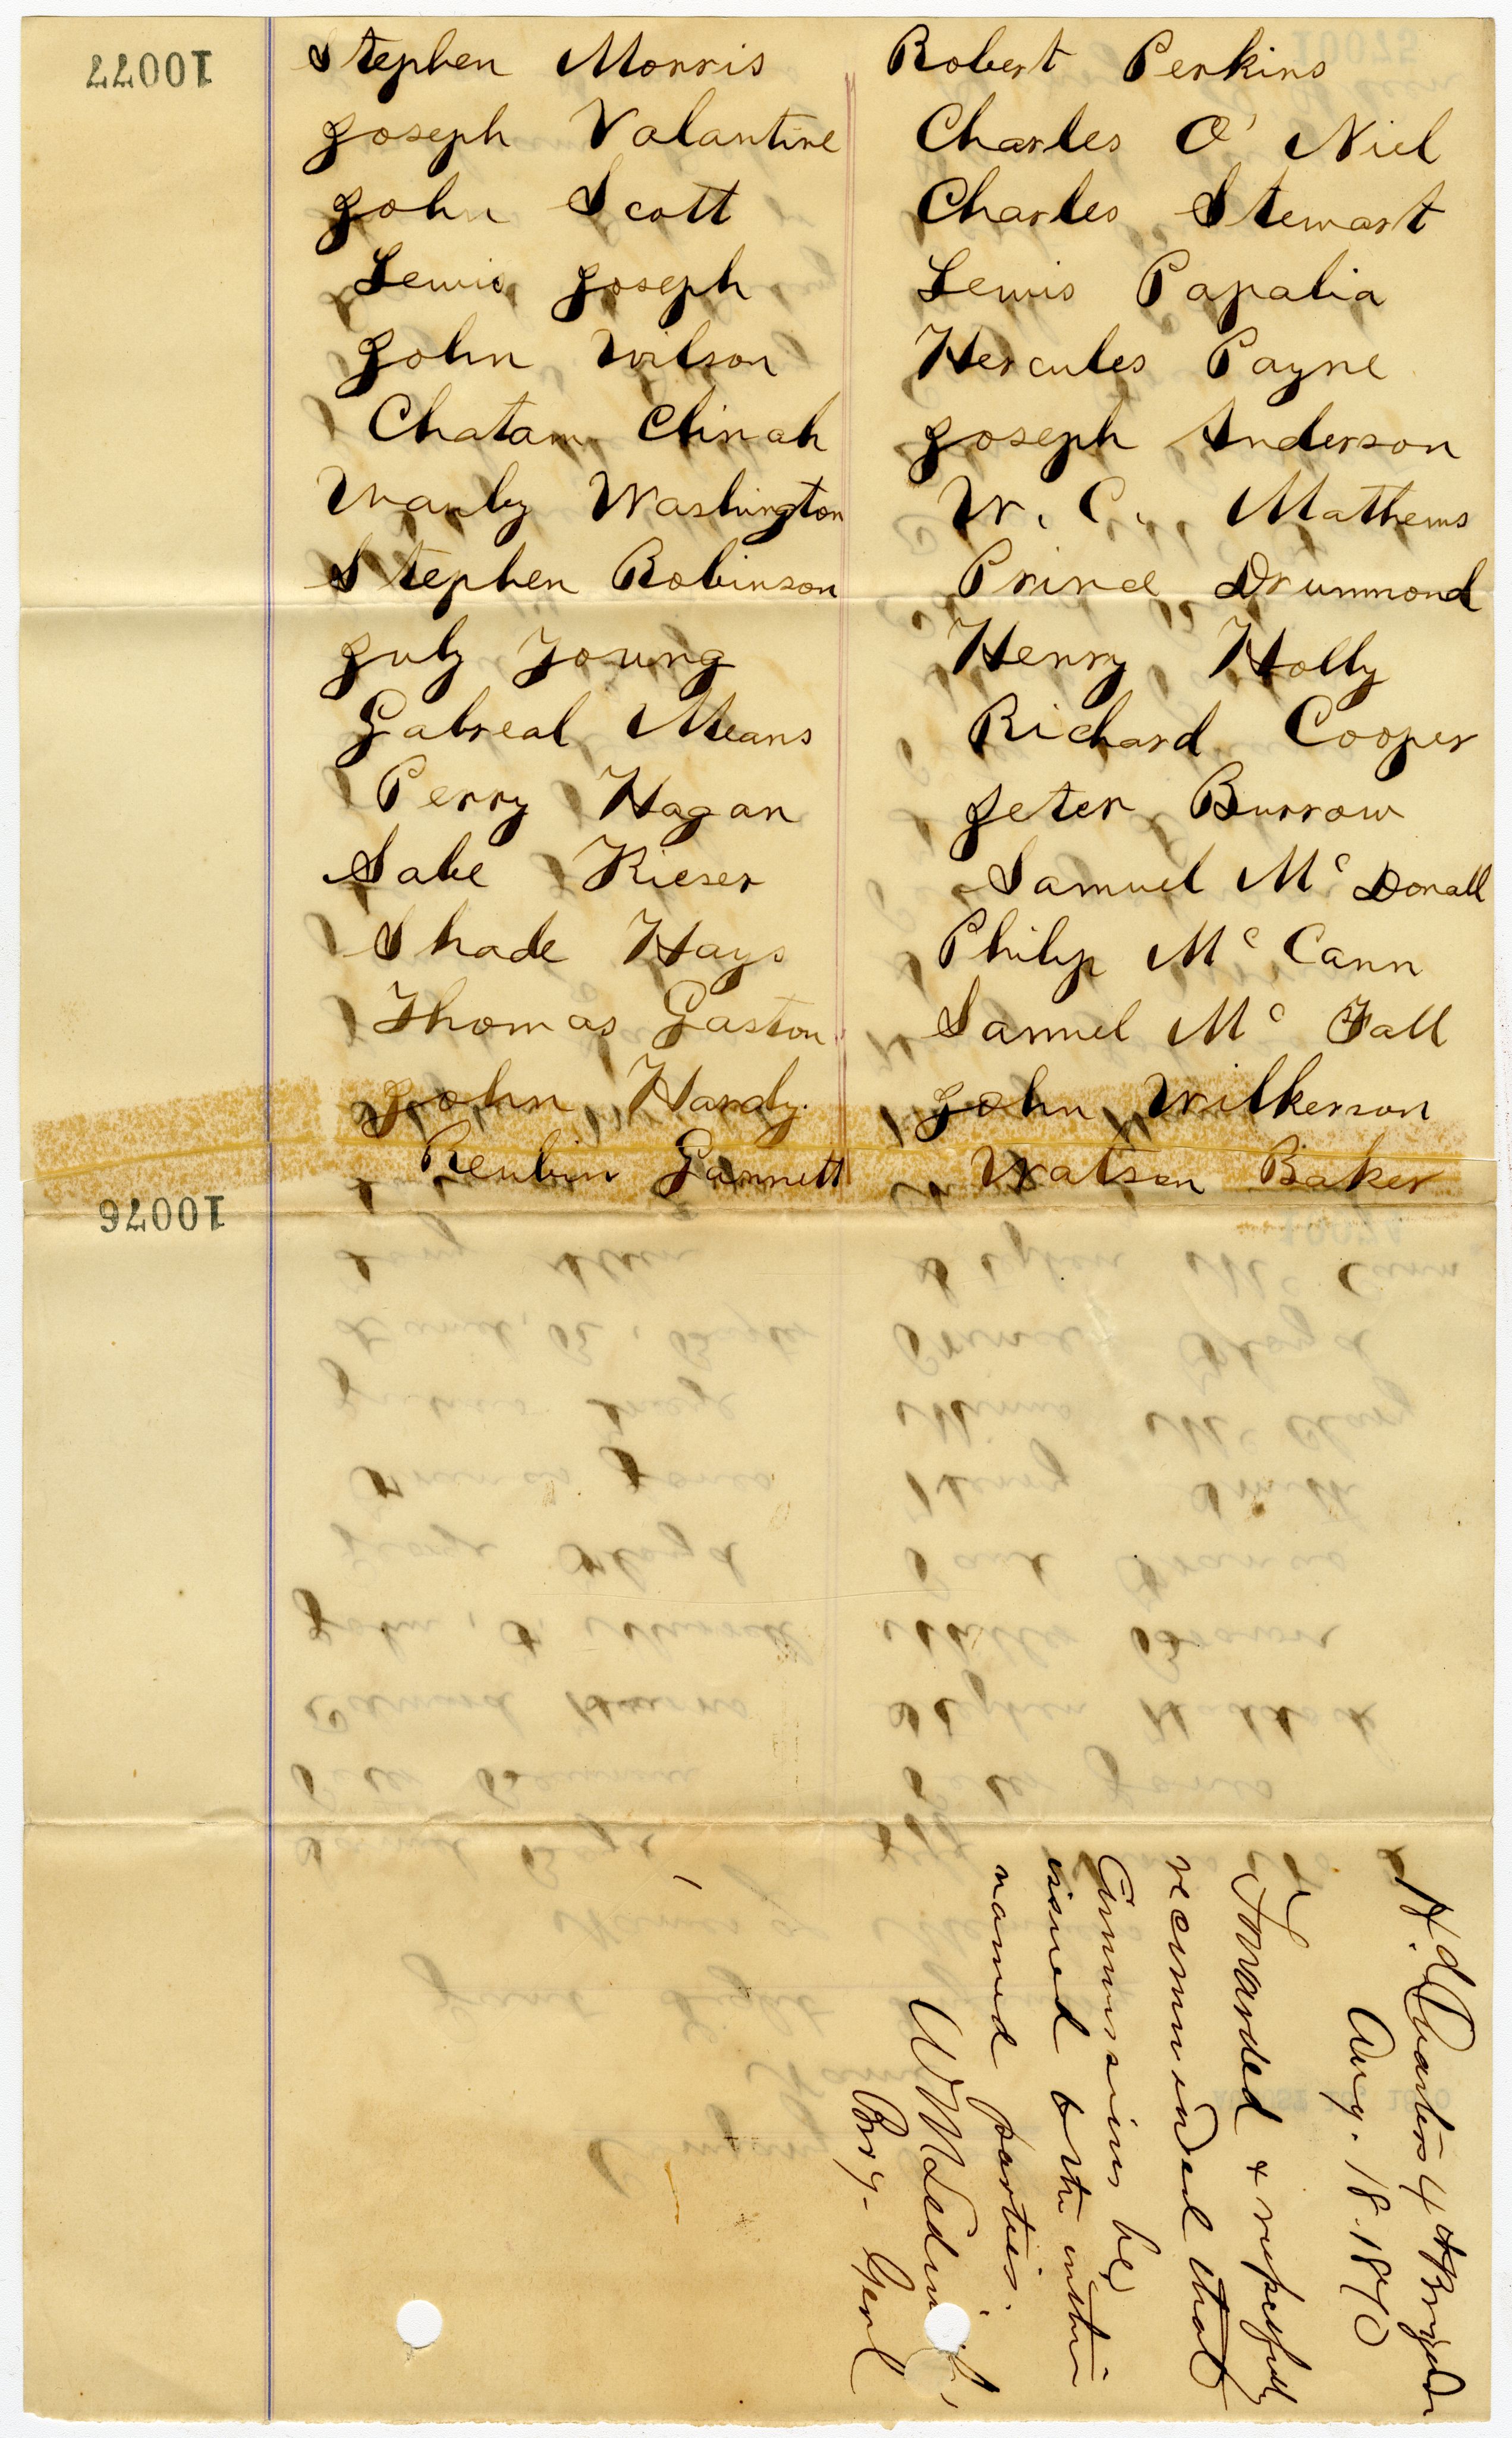 10077
Stephen Morris
Joseph Valantine
John Scott
Lewis Joseph
John Wilson
Chatam Chinah
Wanly Washington
Stephen Robinson
July Young
Gabreal Means
Perry Hagan
Sabe Kieser
Shade Hays
Thomas Gaston
John Hardy.
Reubin Gannett
Robert Perkins
Charles O' Niel
Charles Stewart
Lewis Papalia
Hercules Payne
Joseph Anderson
W. C. Mathews
Prince Drummond
Henry Holly
Richard Cooper
Peter Burrow
Samuel Mc Donall
Philip Mc Cann
Samuel Mc Fall
John Wilkerson
Watson Baker
10076
Hd. Quarters 4th Brigade
Aug. 18. 1870
Forwarded & respectfully
recommended that
Commissions be
issued to the within
named parties.
Brig. Genl